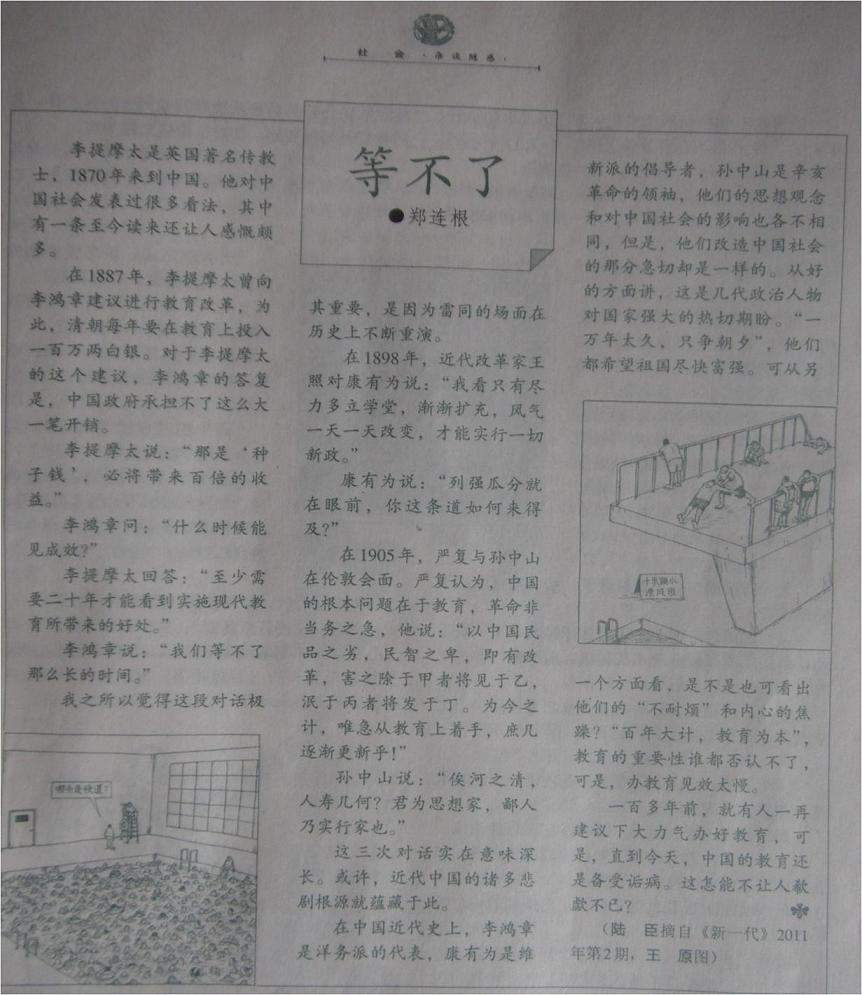 社会·杂谈随感·
等不了
●郑连根
李提摩太是英国著名传教
士，1870年来到中国。他对中
国社会发表过很多看法，其中
有一条至今读来还让人感慨颇
多。
在1887年，李提摩太曾向
李鸿章建议进行教育改革，为
此，清朝每年要在教育上投入
一百万两白银。对于李提摩太
的这个建议，李鸿章的答复
是，中国政府承担不了这么大
一笔开销。
李提摩太说：“那是‘种
子钱’，必将带来百倍的收
益。”
李鸿章问：“什么时候能
见成效？”
李提摩太回答：“至少需
要二十年才能看到实施现代教
育所带来的好处。”
李鸿章说：“我们等不了
那么长的时间。”
我之所以觉得这段对话极
哪条是快道？
其重要，是因为雷同的场面在
历史上不断重演。
在1898年，近代改革家王
照对康有为说：“我看只有尽
力多立学堂，渐渐扩充，风气
一天一天改变，才能实行一切
新政。”
康有为说：“列强瓜分就
在眼前，你这条道如何来得
及？”
在1905年，严复与孙中山
在伦敦会面。严复认为，中国
的根本问题在于教育，革命非
当务之急，他说：“以中国民
品之劣，民智之卑，即有改
革，害之除于甲者将见于乙，
泯于丙者将发于丁。为今之
计，唯急从教育上着手，庶几
逐渐更新乎！”
孙中山说：“俟河之清，
人寿几何？君为思想家，鄙人
乃实行家也。”
这三次对话实在意味深
长。或许，近代中国的诸多悲
剧根源就蕴藏于此。
在中国近代史上，李鸿章
是洋务派的代表，康有为是维
新派的倡导者，孙中山是辛亥
革命的领袖，他们的思想观念
和对中国社会的影响也各不相
同，但是，他们改造中国社会
的那分急切却是一样的。从好
的方面讲，这是几代政治人物
对国家强大的热切期盼。“一
万年太久，只争朝夕”，他们
都希望祖国尽快富强。可从另
十米跳水
速成班
一个方面看，是不是也可看出
他们的“不耐烦”和内心的焦
躁？“百年大计，教育为本”，
教育的重要性谁都否认不了，
可是，办教育见效太慢。
一百多年前，就有人一再
建议下大力气办好教育，可
是，直到今天，中国的教育还
是备受诟病。这怎能不让人欷
歔不已？
（陆 臣摘自《新一代》2011
年第2期，王 原图）